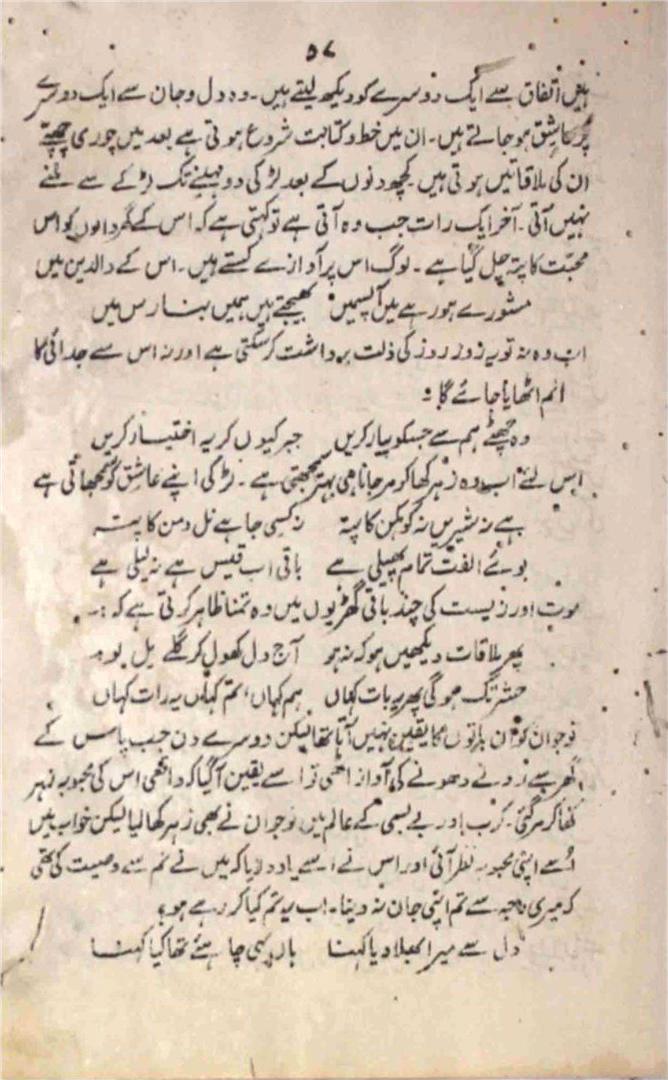 ۵۷
ہیں اتفاق سے ایک دوسرے کو دیکھ لیتے ہیں۔ وہ دل وجان سے ایک دوسرے
پر عاشق ہو جاتے ہیں۔ ان میں خط و کتابت شروع ہوتی ہے بعد میں چوری چھپے
ان کی ملاقاتیں ہوتی ہیں کچھ دنوں کے بعد لڑکی دو مہینے تک لڑکے سے ملنے
نہیں آتی۔ آخر ایک رات جب وہ آتی ہے تو کہتی ہے کہ اس کے گھر والوں کو اس
محبت کا پتہ چل گیا ہے۔ لوگ اس پر آوازے کستے ہیں۔ اس کے والدین میں
مشورے ہو رہے ہیں آپسمیں بھیجتے ہیں ہمیں بنارس میں
اب وہ نہ تو یہ روز روز کی ذلت برداشت کر سکتی ہے اور نہ اس سے جدائی کا
الم اٹھایا جائے گا۔
وہ چھٹے ہم سے جسکو پیار کریں جبر کیوں کر یہ اختیار کریں
اس لئے اب وہ زہر کھا کر مر جانا ہی بہتر سمجھتی ہے۔ لڑکی اپنے عاشق کو سمجھاتی ہے
ہے نہ شیریں نہ کوہکن کا پتہ نہ کسی جا ہے نل دمن کا پتہ
بوئے الفت تمام پھیلی ہے باقی اب قیس ہے نہ لیلی ہے
موت اور زیست کی چند باقی گھڑیوں میں وہ تمنا ظاہر کرتی ہے کہ :۔
پھر ملاقات دیکھیں ہو کہ نہ ہو آج دل کھول کر گلے مل لو
حشر تک ہوگی پھر یہ بات کہاں ہم کہاں، تم کہاں یہ رات کہاں
نوجوان کو ان باتوں کا یقین نہیں آتا تھا لیکن دوسرے دن جب پاس کے
گھر سے رونے دھونے کی آواز اٹھی تو اسے یقین آگیا کہ واقعی اس کی محبوبہ زہر
کھا کر مر گئی۔ کرب اور بے بسی کے عالم میں نوجوان نے بھی زہر کھا لیا لیکن خواب میں
اُسے اپنی محبوبہ نظر آئی اور اس نے اسے یاد دلایا کہ میں نے تم سے وصیت کی تھی
کہ میری وجہ سے تم اپنی جان نہ دینا۔ اب یہ تم کیا کر رہے ہو؟
دل سے میرا بھلا دیا کہنا ہاں یہی چاہئے تھا کیا کہنا